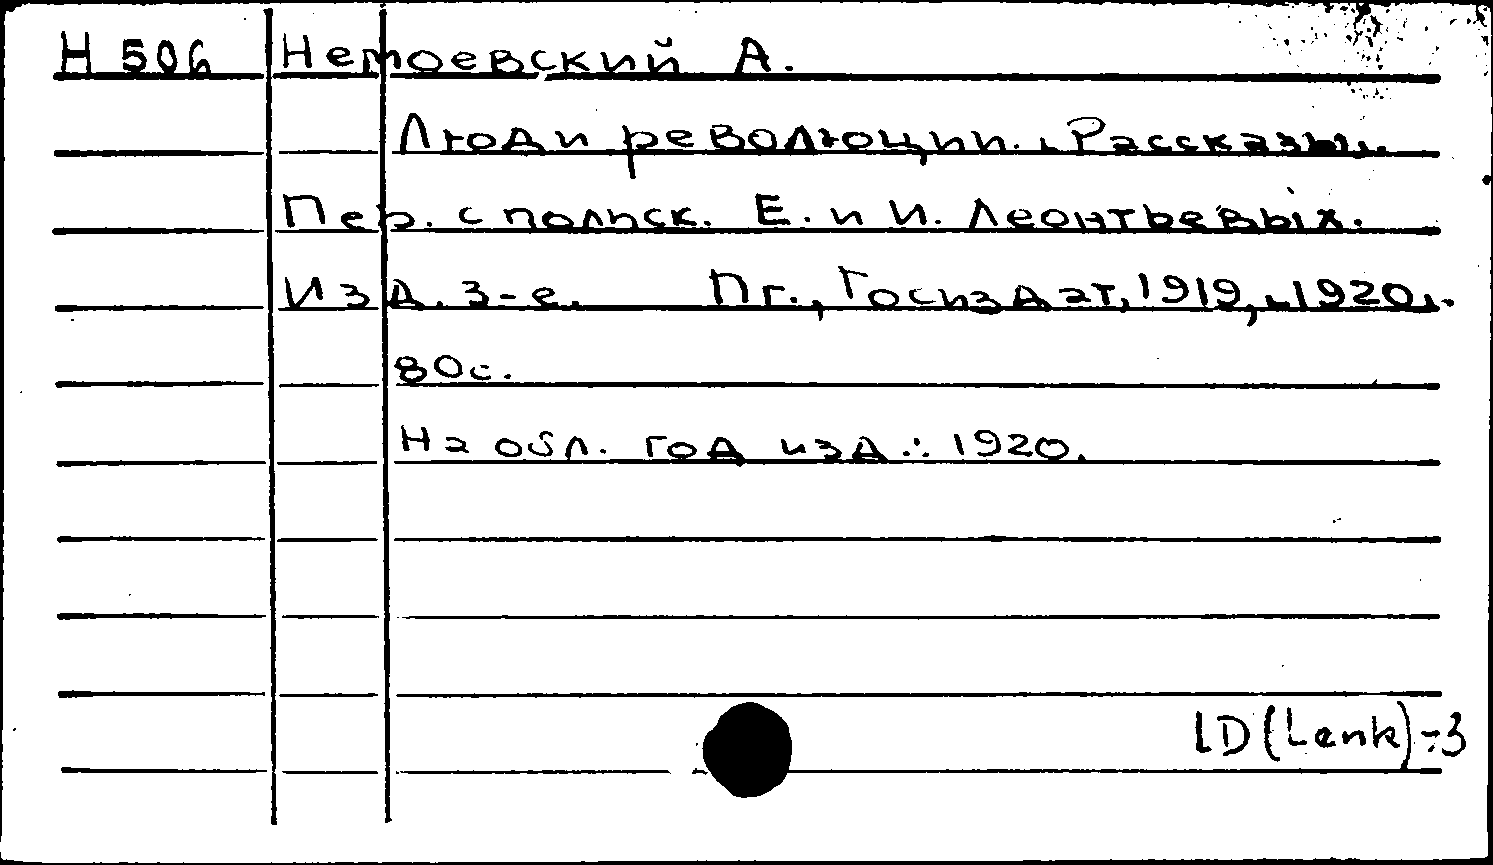 Н 506 Немоевский А.
Люди революции. [Рассказы].
Пер. с польск. Е. и И. Леонтьевых.
Изд. 3-е. Пг., Госиздат, 1919, [1920].
80с.
На обл. год изд.: 1920.
LD (Lenk)-3